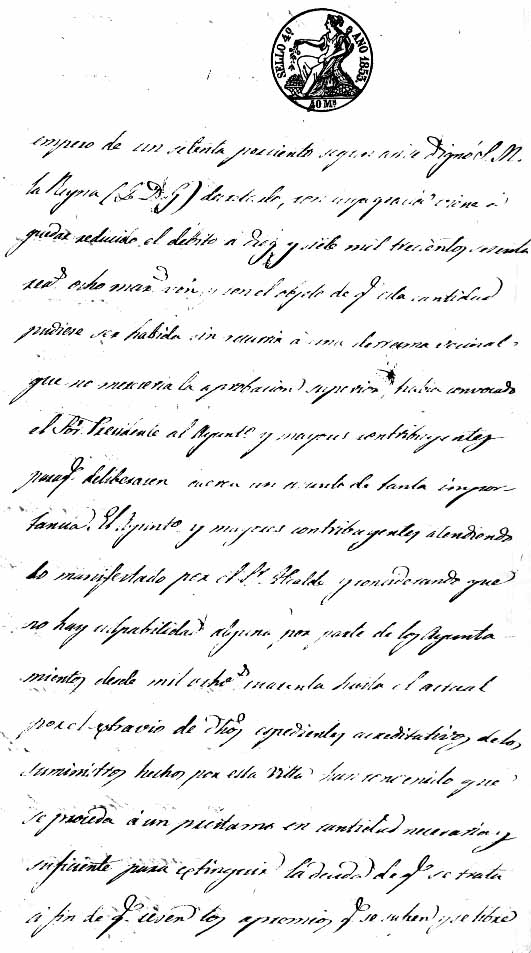 SELLO 4º AÑO 1853.
40 Ms
de un setenta por ciento segun se Dignó S. M.
la Reyna (Q D G) con cuya gracia viene á
quedar reducido el debito á diez y siete mil trescientos sesenta
reas ocho mars vón y con el objeto de qe esta cantidad
pudiese ser habida sin recurrir á una derrama vecinal
que no mereceria la aprobacion superior, habia convocado
el Sor. Presidente al Ayunto y mayores contribuyentes
paraqe deliberasen acerca un asunto de tanta impor-
tancia. El Ayunto y mayores contribuyentes atendiendo
lo manifestado por el Sr Alcalde y considerando que
no hay culpabilidad alguna por parte de los Ayunta
mientos desde mil ochos cuarenta hasta el actual
por el extravio de dhos espedientes acreditativos de los
suministros hechos por esta Villa han convenido que
se proceda á un prestamo en cantidad necesaria y
suficiente para extinguir la deuda de qe se trata
á fin de qe cesen los apremios qe se sufren y se libre